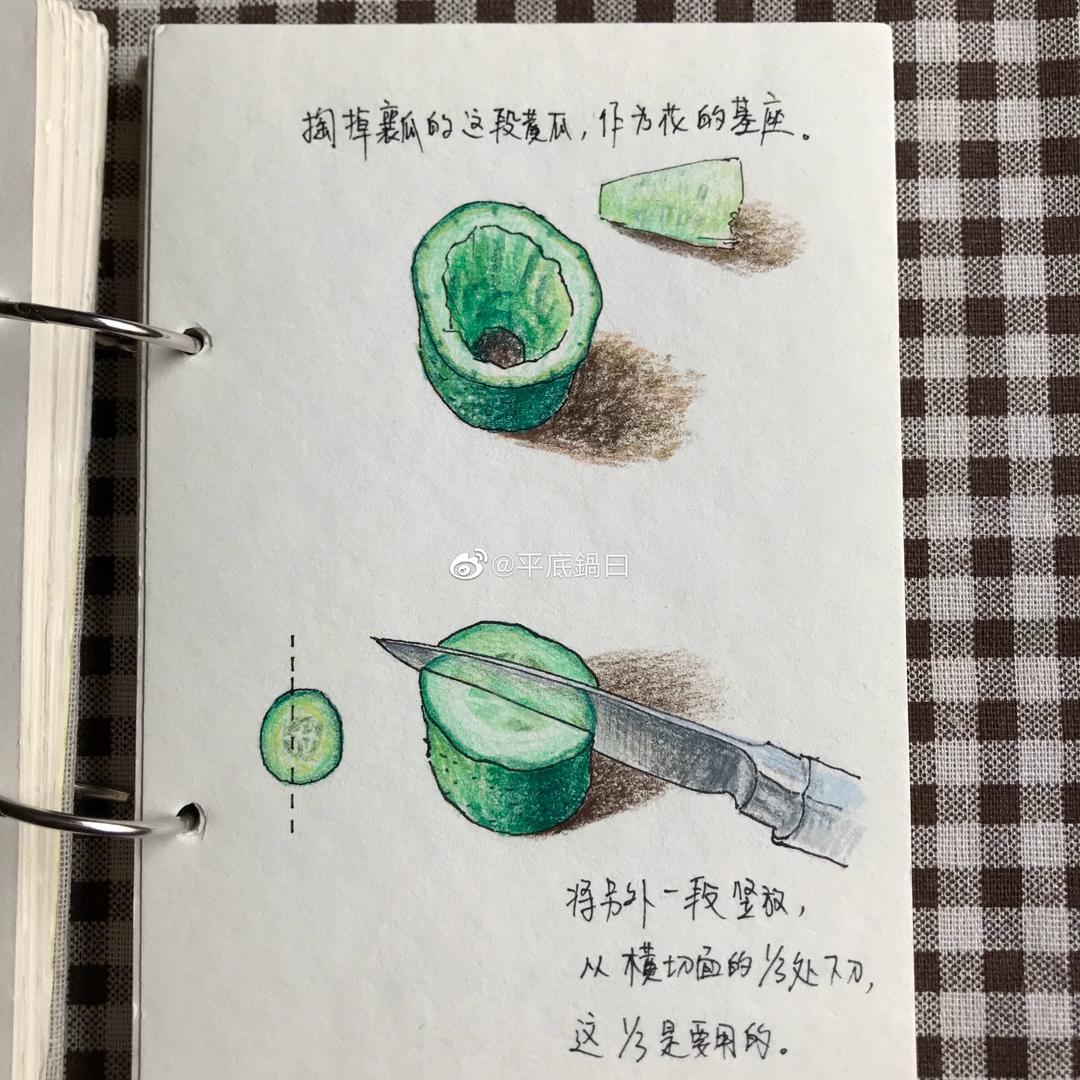 掏掉瓤的这段黄瓜，作为花的基座。
@平底鍋日
将另外一段竖放，
从横切面的1/3处下刀，
这1/3是要用的。